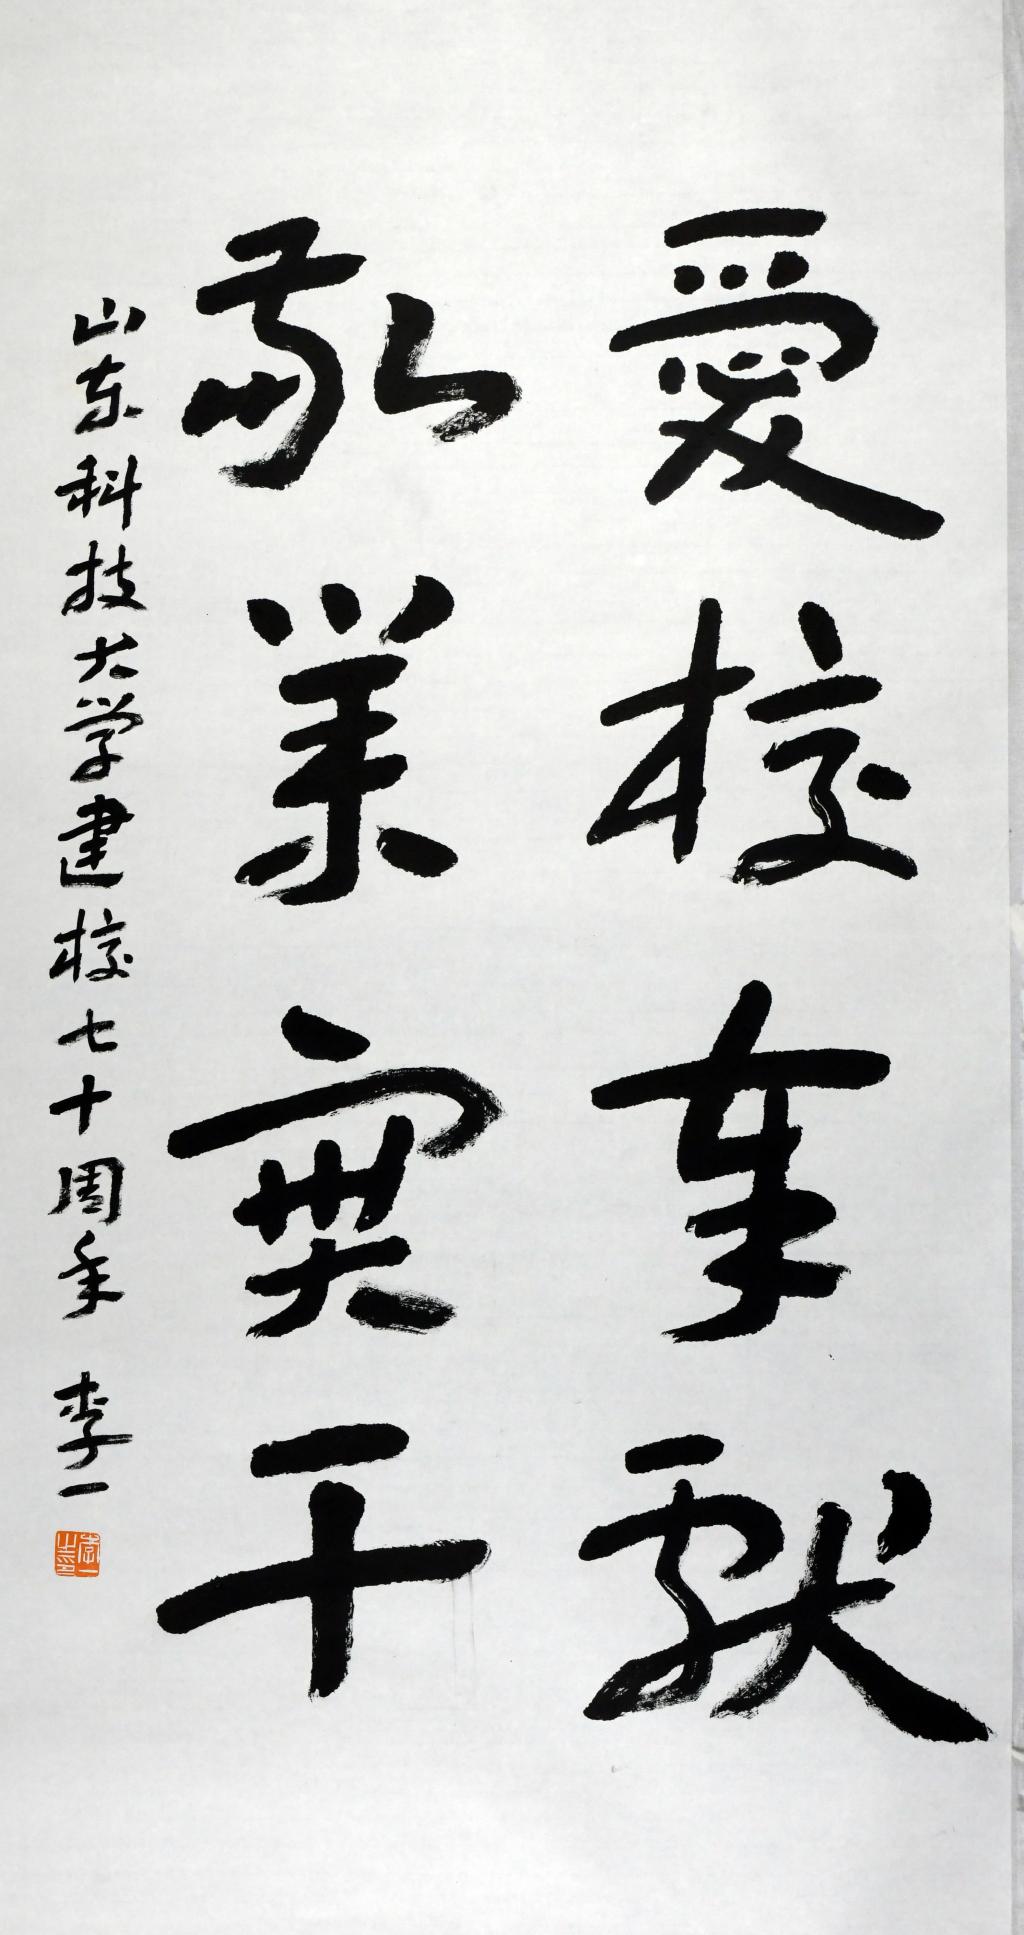 愛校奉獻
敬業實干
山东科技大学建校七十周年 李一
李一之印